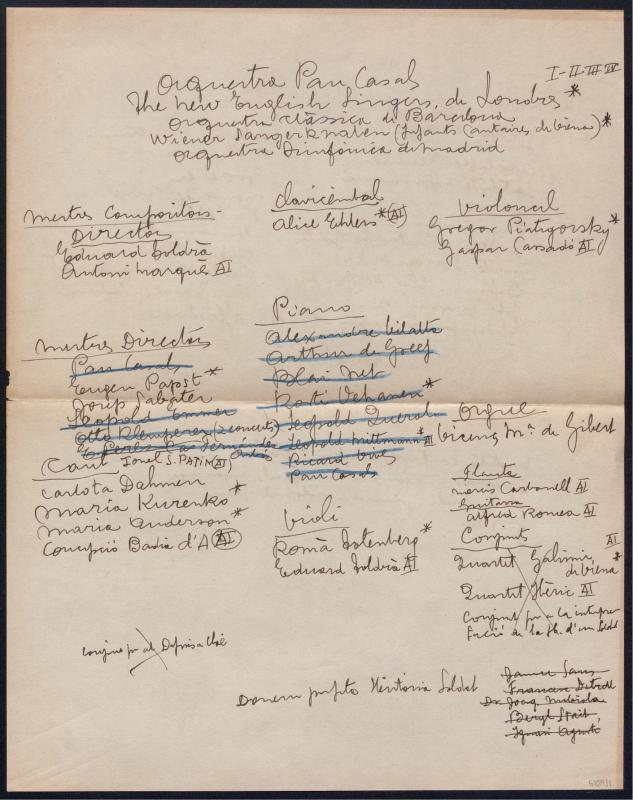 I-II-III-IV
Orquestra Pau Casals
The New English Singers, de Londres *
Orquestra Clàssica de Barcelona
Wiener Sangerknaben (Infants Cantaires de Viena) *
Orquestra Simfònica de Madrid
Mestres Compositors-
Directors
Eduard Toldrà
Antoni Marquès AI
Clavicèmbal
Alice Ehlers * AI
Violoncel
Gregor Piatigorsky *
Gaspar Cassadó AI
Mestres Directors
Pau Casals
Eugen Papst *
Josep Sabater
Leopold
Otto Klemperer (2 concerts)
E. Fernández Arbós
Piano
Alexandre Vilalta
Arthur de Greef
Blai Net
Kosti Vehanen *
Leopold Querol
Leopold Mittmann * AI
Ricard Vives
Pau Casals
Orgue
Vicenç Mª de Gibert
Cant
S. PATIN AI
Carlota Dahmen
Maria Kurenko *
Maria Anderson *
Concepció Badia d'A AI
Violí
Romà Totenberg *
Eduard Toldrà AI
Flauta
Narcís Carbonell AI
Guitarra
Alfred Romea AI
Conjunts AI
Quartet Galimir,
de Viena *
Quartet Ibèric AI
Conjunt per a la interpre
tació de la
Conjunt per al
Donem
Francesc
Dr. Joaq.
Beryl
Ignasi Agustí